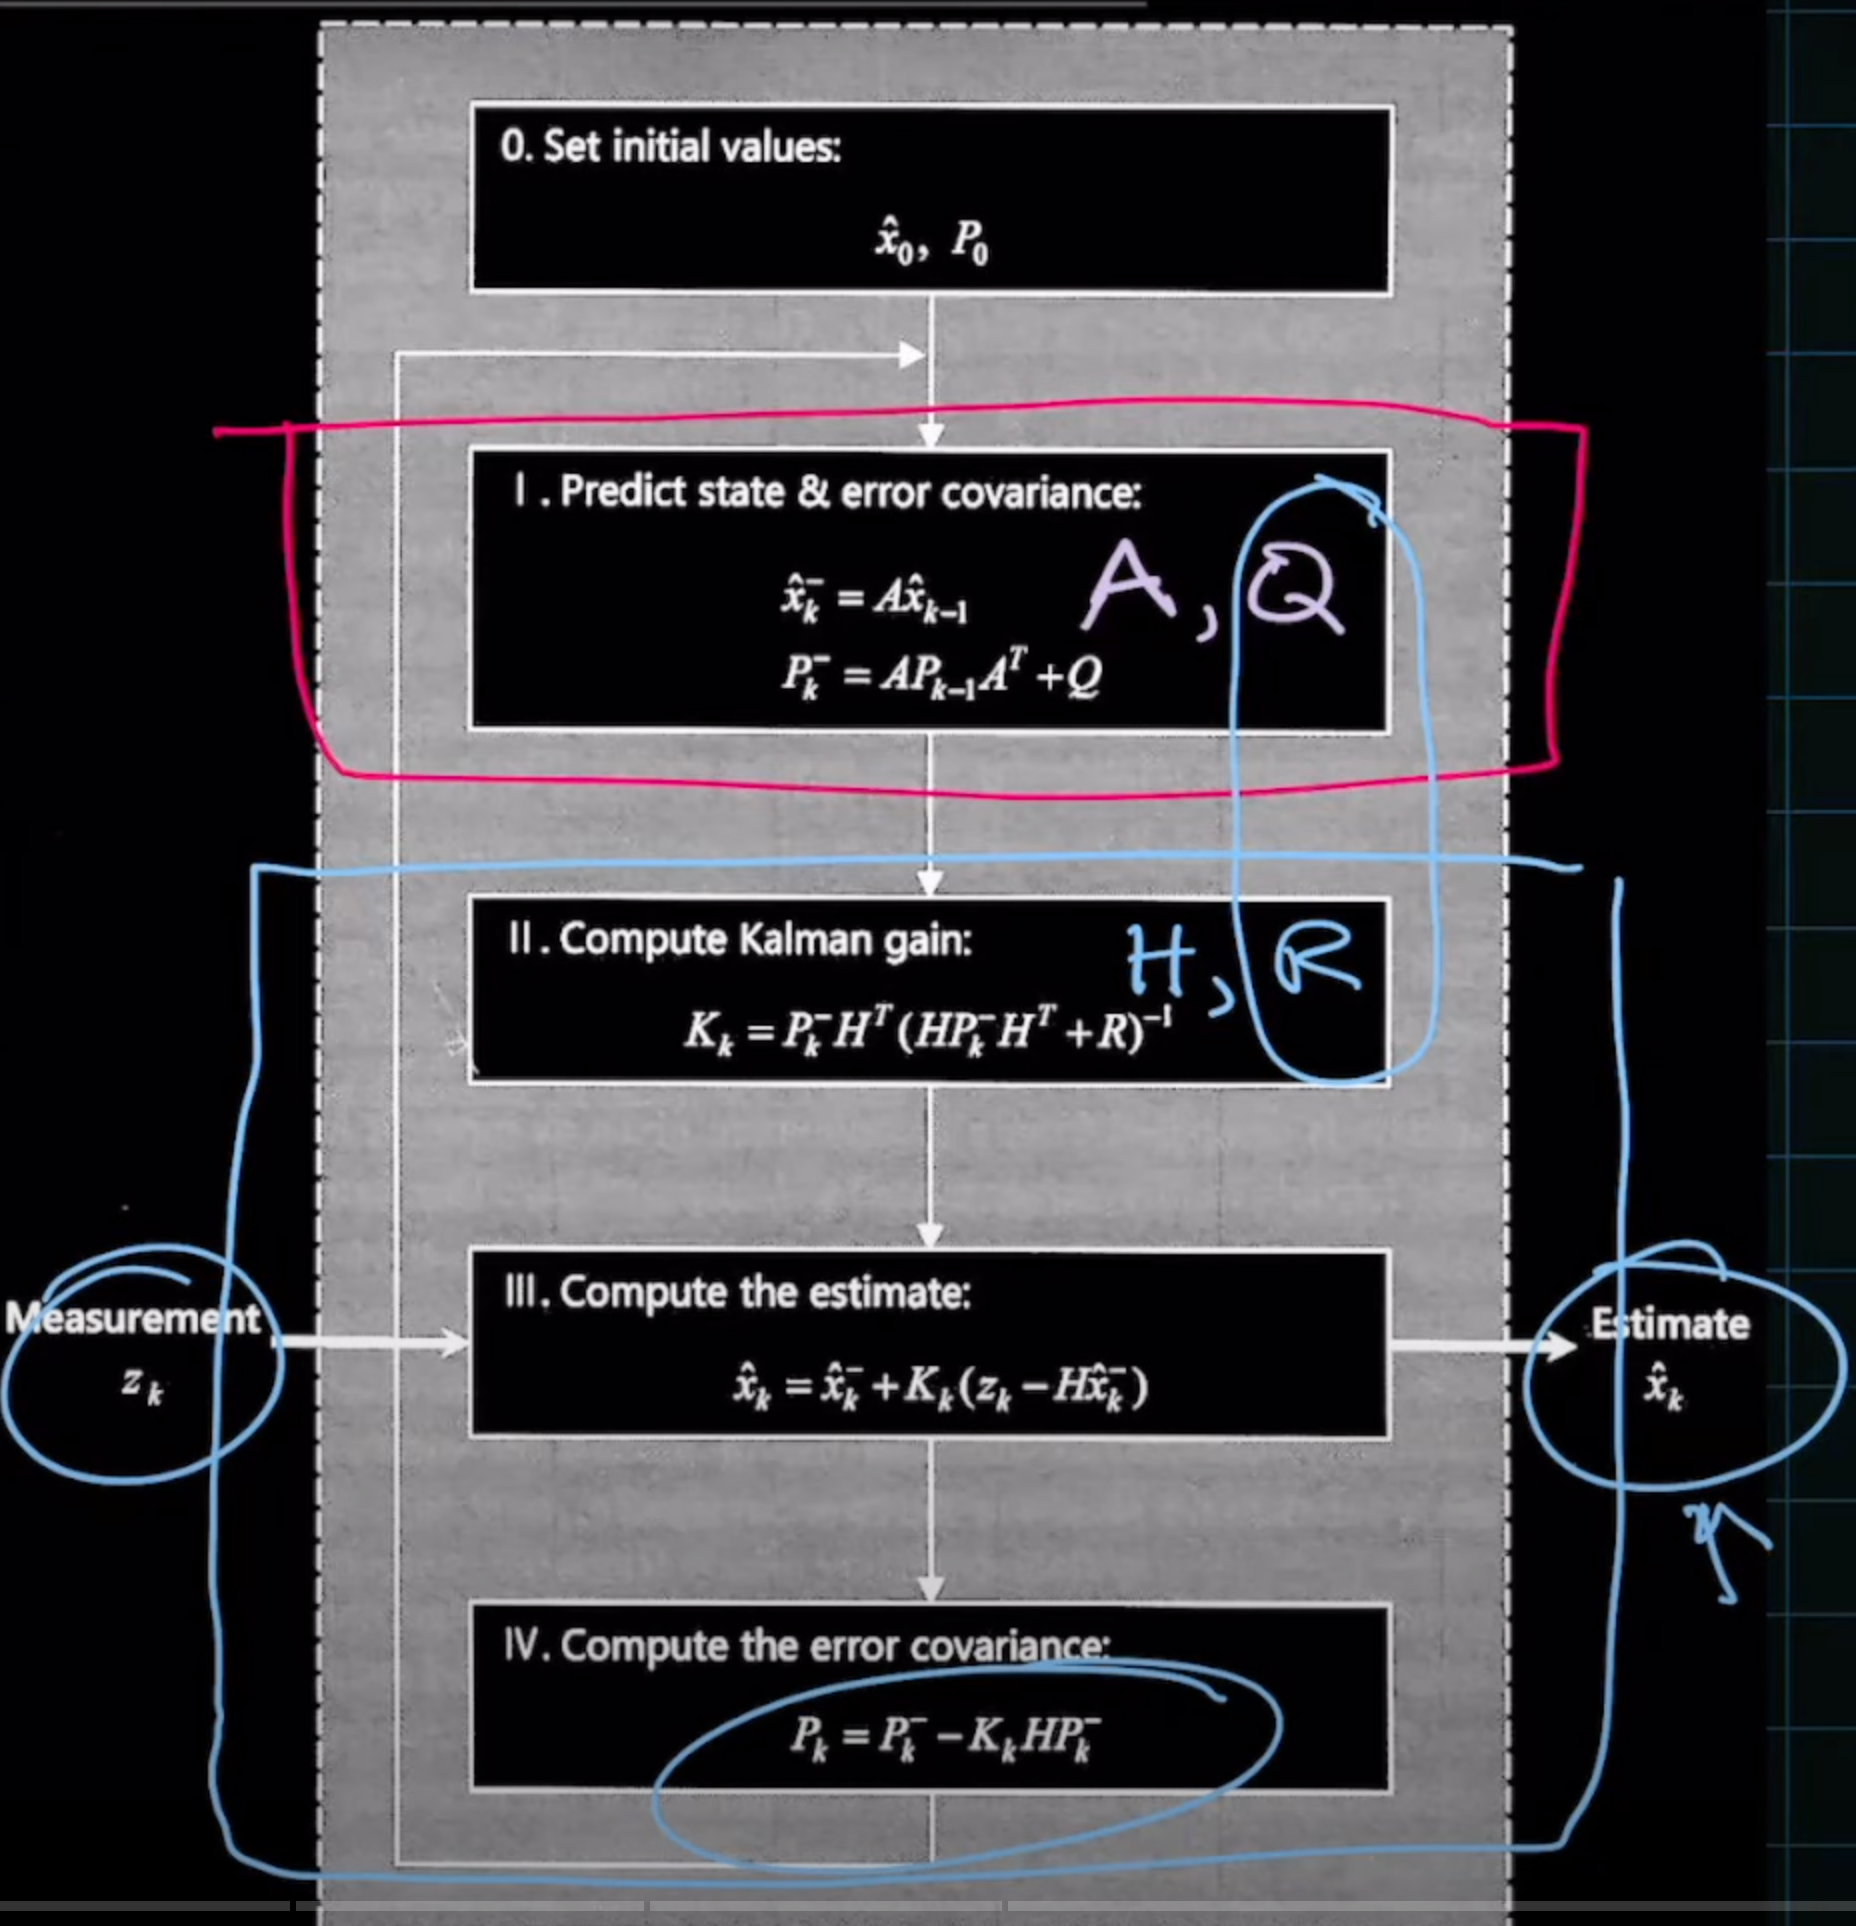 0. Set initial values:
x̂₀, P₀
Ⅰ. Predict state & error covariance:
x̂ₖ⁻ = Ax̂ₖ₋₁
A, Q
Pₖ⁻ = APₖ₋₁Aᵀ + Q
Ⅱ. Compute Kalman gain:
H, R
Kₖ = Pₖ⁻Hᵀ(HPₖ⁻Hᵀ + R)⁻¹
Ⅲ. Compute the estimate:
Measurement
zₖ
x̂ₖ = x̂ₖ⁻ + Kₖ(zₖ − Hx̂ₖ⁻)
Estimate
x̂ₖ
Ⅳ. Compute the error covariance:
Pₖ = Pₖ⁻ − KₖHPₖ⁻